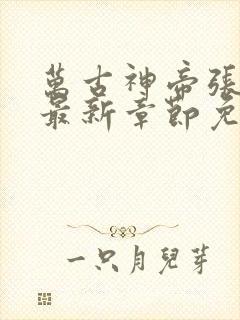 萬古神帝張
最新章節免
一只月兒芽